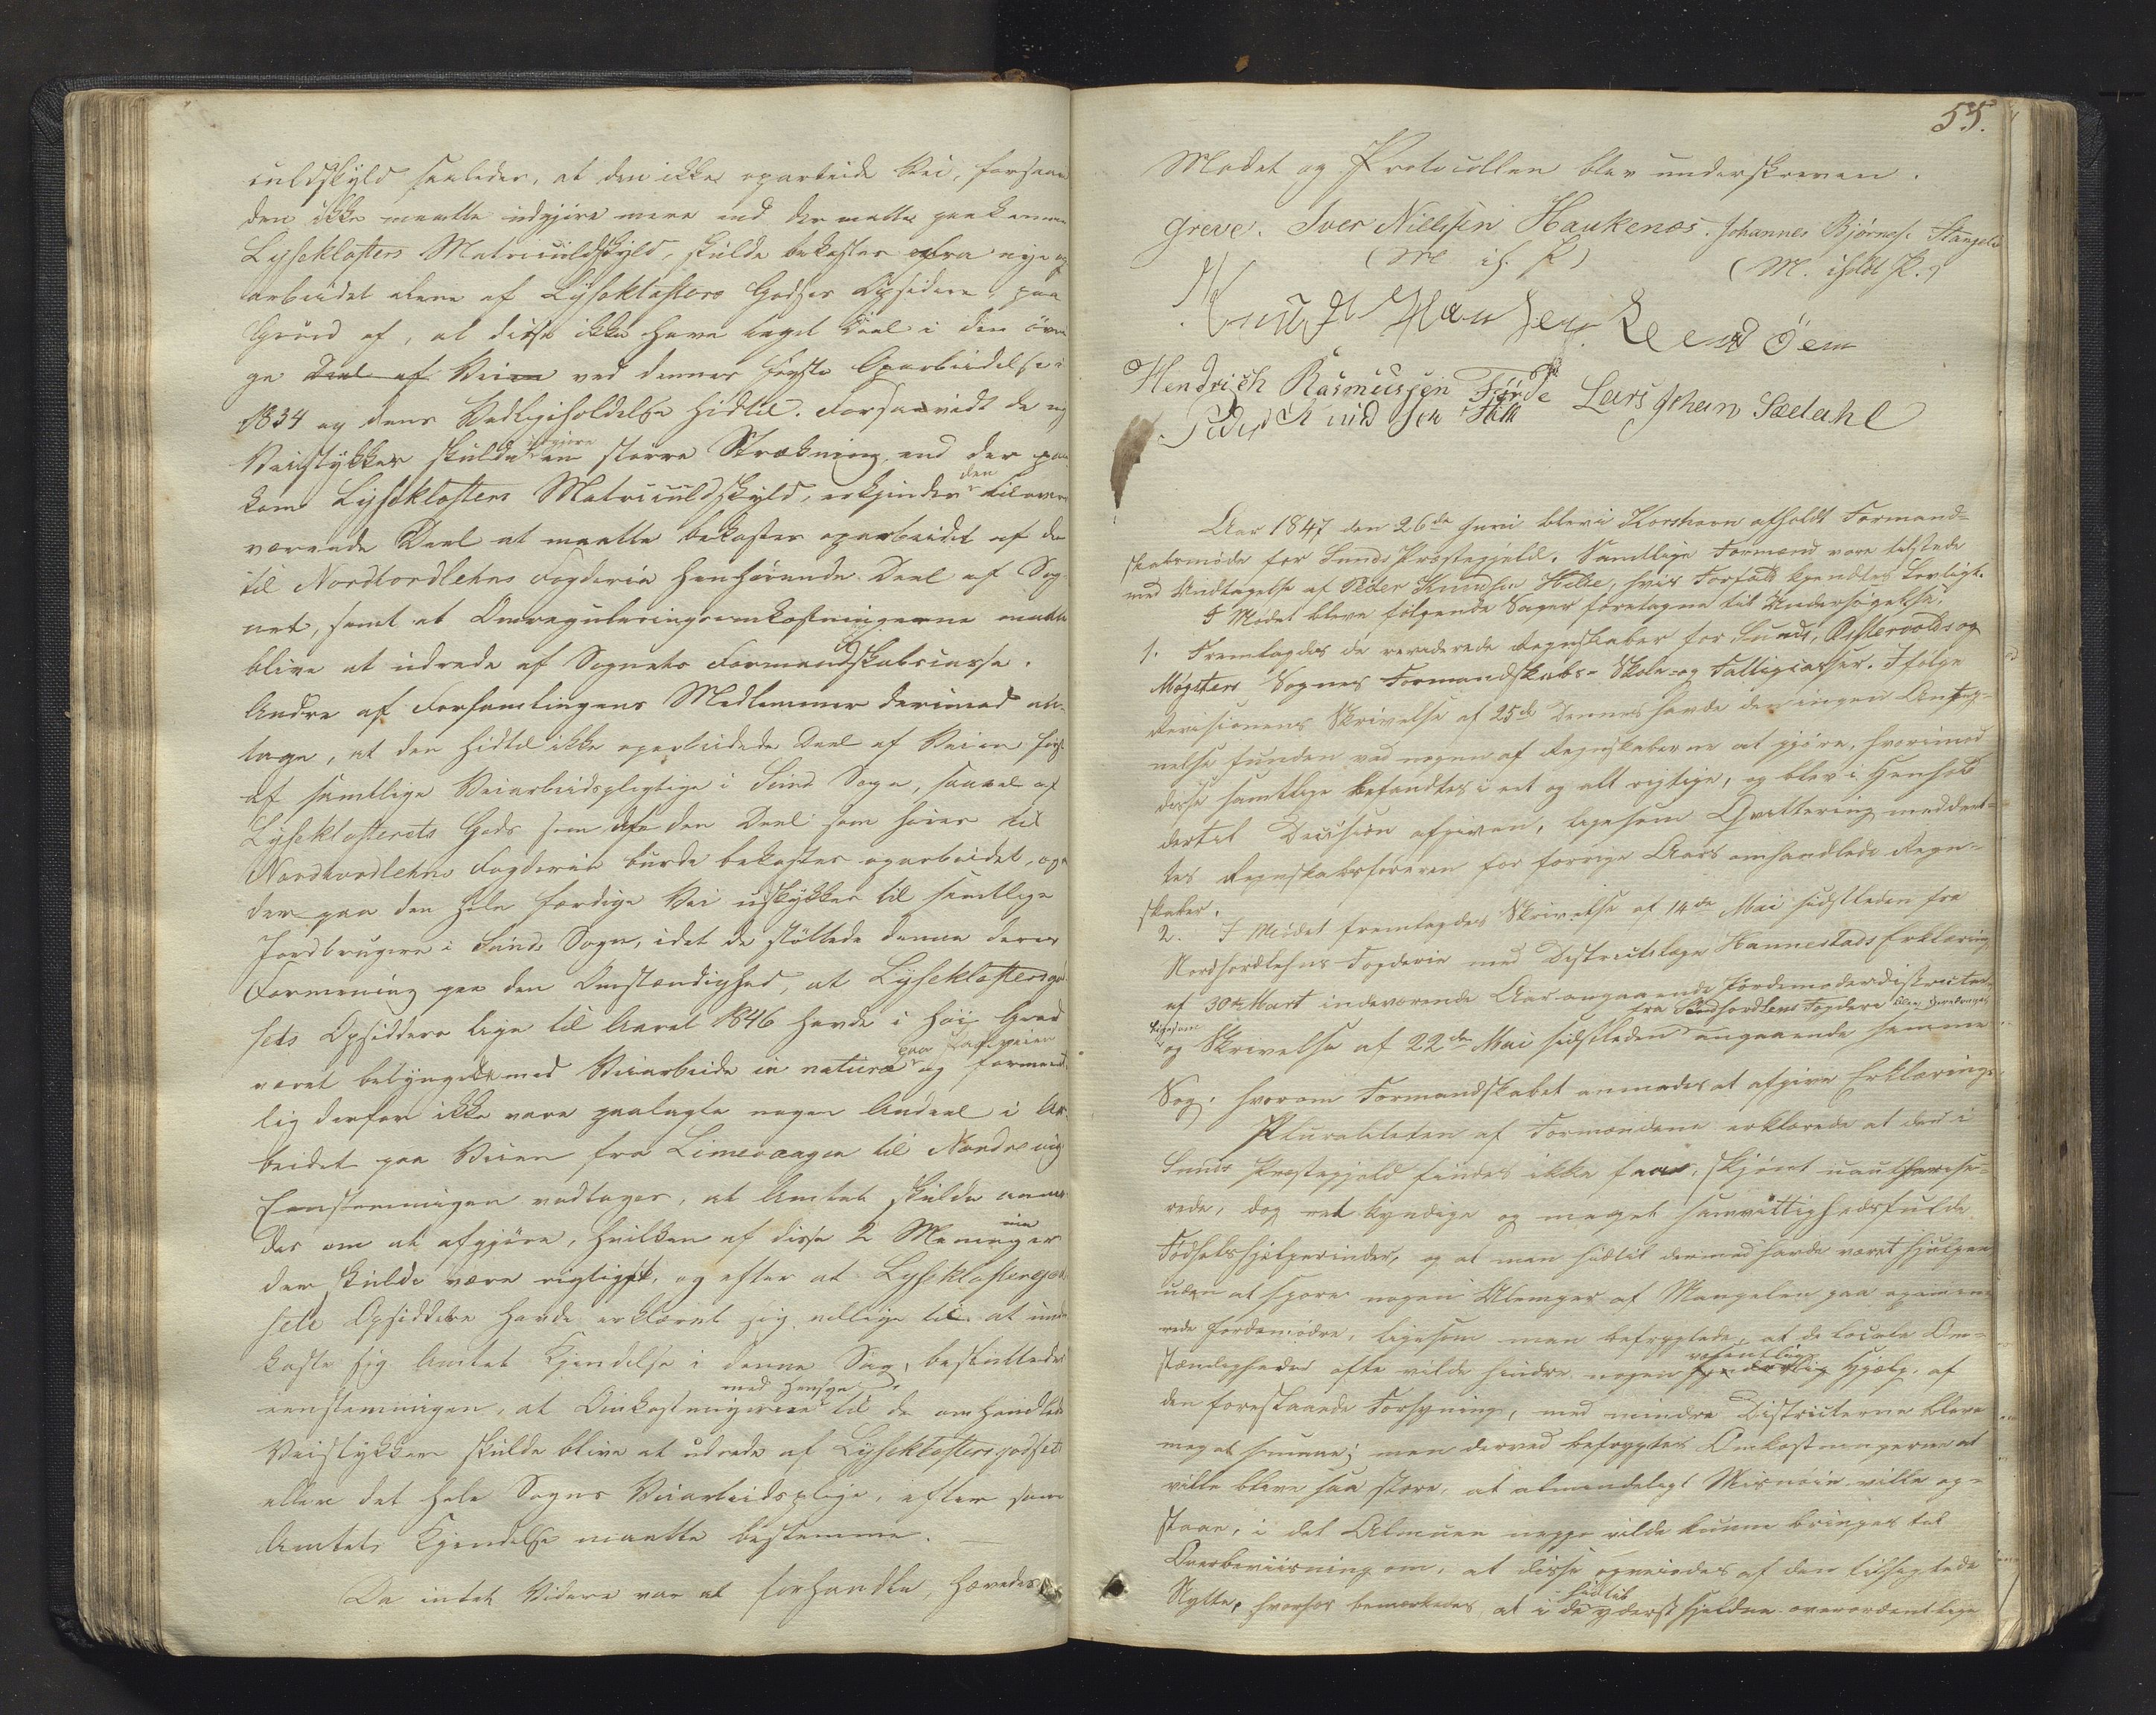 culdskyld saaledes, at den ikke oparbeide Vei, forsaavidt
den ikke maatte udgjøre mere end der maatte paakomme
Lyseklosters Matriculdskyld, skulde bekostes fra nye op
arbeidet alene af Lyseklosters Godses Opsidere, paa
Grund af, at disse ikke have taget Deel i den øvri
ge Deel af Veien ved dennes første Oparbeidelse i
1834 og dens Vedligeholdelse hidtil. Forsaavidt de
Veistykker skulde udgjøre en større Strækning, end der paa
kom Lyseklosters Matriculdskyld, erkjendes den tilovers
værende Deel at maatte bekostes oparbeidet af den
til Nordhordlehns Fogderie henhørende Deel af Sog
net, samt at Omreguleringsomkostningerne maatte
blive at udrede af Sognets Formandskabscasse.
Andre af Forsamlingens Medlemmer derimod an-
toge, at den hidtil ikke oparbeidede Deel af Veien
af samtlige Veiarbeidspligtige i Sund Sogn, saavel af
Lyseklosterets Gods som af den Deel som hører til
Nordhordlehns Fogderie burde bekostes oparbeidet, og
der paa den hele færdige Vei udstykkes til samtlige
Jordbrugere i Sunds Sogn, idet de støttede denne deres
Formening paa den Omstændighed, at Lyseklostersgod
sets Opsiddere lige til Aaret 1846 havde i høi Grad
været betyngede med Veiarbeide in natura paa og formeent
lig derfor ikke vare paalagte nogen Andeel i Ar
beidet paa Veien fra Limevaagen til Nordre
Eenstemmigen vedtoges, at Amtet skulde anmo
des om at afgjøre, hvilken af disse 2 Meninger
der skulde være rigtigst, og efter at Lyseklostersgod
sets Opsiddere havde erklæret sig villige til at under
kaste sig Amtets Kjendelse i denne Sag, besluttedes
eenstemmigen, at Omkostningerne med Hensyn til de omhandlede
Veistykker skulde blive at udrede af Lyseklostersgodset
eller det hele Sogns Veiarbeidspligtige, efter som
Amtets Kjendelse maatte bestemme.
Da intet Videre var at forhandle, hævedes
55.
Mødet og Protocollen blev underskreven.
Greve. Iver Nielssen Haukenæs. Johannes Bjørnes. Stangel
(M. ih. P.) (M. iholdt P.)
Knud Hansen
Hendrich Rasmussen Førde Lars Johan Sædahl
Peder Knudsen
Aar 1847 den 26de Juni blev i Korshavn afholdt Formand-
skabsmøde for Sunds Præstegjeld. Samtlige Formænd vare tilstede
med Undtagelse af Peder Knudsen, hvis Forfald kjendtes lovligt.
I Mødet bleve følgende Sager foretagne til Undersøgelse.
1. Fremlagdes de reviderede Regnskaber for Sunds, Østervolds og
Møgsters Sognes Formandskabs- Skole- og Fattigcasser. Ifølge
Revisionens Skrivelse af 25de Dennes havde den ingen Anteg-
nelse funden ved nogen af Regnskaberne at gjøre, hvorimod
disse samtlige befandtes i eet og alt rigtige, og blev i Henhold
dertil Decision afgiven, ligesom Qvittering meddeel-
tes Regnskabsføreren for forrige Aars omhandlede Regn-
skaber.
2. I Mødet fremlagdes Skrivelse af 14de Mai sidstleden fra
Nordhordlehns Fogderie med Districtslæge Hannestads Erklæring
af 30te Marts indeværende Aar angaaende Jordemoderdistricter
ligesom og Skrivelse af 22de Mai sidstleden fra Søndhordlens Fogderi angaaende samme
Sag, hvorom Formandskabet anmodes at afgive Erklæring.
Pluraliteten af Formændene erklærede at der i
Sunds Præstegjeld findes ikke faa, skjønt uauthorise-
rede, dog ret kyndige og meget samvittighedsfulde
Fødselshjælperinder, og at man hidtil dermed havde været hjulpen
uden at spore nogen Ulemper af Mangelen paa examine
rede Jordemødre, ligesom man befrygtede, at de locale Om-
stændigheder ofte vilde hindre nogen væsentlig Hjælp af
den forestaaende Forsyning, med mindre Districterne bleve
meget smaae; men derved befrygtes Omkostningerne at
ville blive saa store, at almindeligt Misnøie ville op-
staae, i det Almuen neppe vilde kunne bringes til
Overbeviisning om, at disse opveiedes af den tilsigtede
Nytte, hvorhos bemærkedes, at i de hidtil yderst sjeldne overordentlige